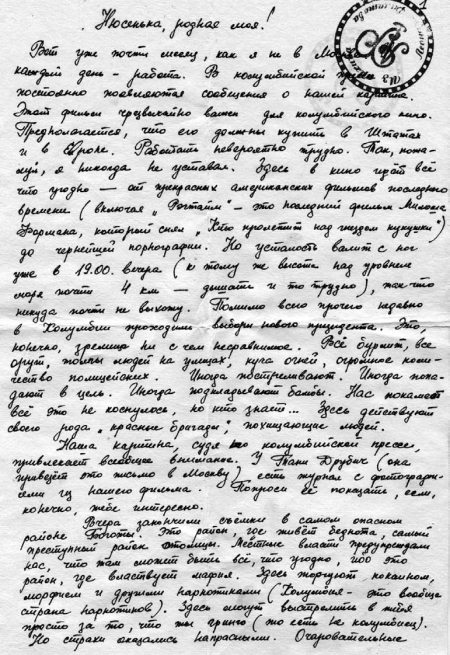 1
Нюсенька, родная моя!
Вот уже почти месяц, как я не в Москве
каждый день - работа. В колумбийской прессе
постоянно появляются сообщения о нашей картине.
Этот фильм чрезвычайно важен для колумбийского кино.
Предполагается, что его должны купить в Штатах
и в Европе. Работать невероятно трудно. Так, пожа-
луй, я никогда не уставал. Здесь в кино идёт всё
что угодно — от прекрасных американских фильмов последнего
времени (включая „Рэгтайм" - это последний фильм Милоша
Формана, который снял „Кто пролетит над гнездом кукушки")
до чернейшей порнографии. Но усталость валит с ног
уже в 19.00. вечера (к тому же высота над уровнем
моря почти 4 км — дышать и то трудно), так что
никуда почти не выхожу. Помимо всего прочего недавно
в Колумбии проходили выборы нового президента. Это,
конечно, зрелище ни с чем несравнимое. Всё бурлит, все
орут, толпы людей на улицах, куча огней, огромное коли-
чество полицейских. Иногда постреливают. Иногда попа-
дают в цель. Иногда подкладывают бомбы. Нас покамест
всё это не коснулось, но кто знает... Здесь действуют
своего рода „красные бригады", похищающие людей.
Наша картина, судя по колумбийской прессе,
привлекает всеобщее внимание. У Тани Друбич (она
привезёт это письмо в Москву) есть журнал с фотографи-
ями из нашего фильма. Попроси её показать, если,
конечно, тебе интересно.
Вчера закончили съёмки в самом опасном
районе Боготы. Это район, где живёт беднота, самый
преступный район столицы. Местные власти предупреждали
нас, что там может быть всё, что угодно, ибо это
район, где властвует мафия. Здесь торгуют кокаином,
морфием и другими наркотиками (Колумбия - это вообще
страна наркотиков). Здесь могут выстрелить в тебя
просто за то, что ты гринго (то есть не колумбиец).
Но страхи оказались напрасными. Очаровательные